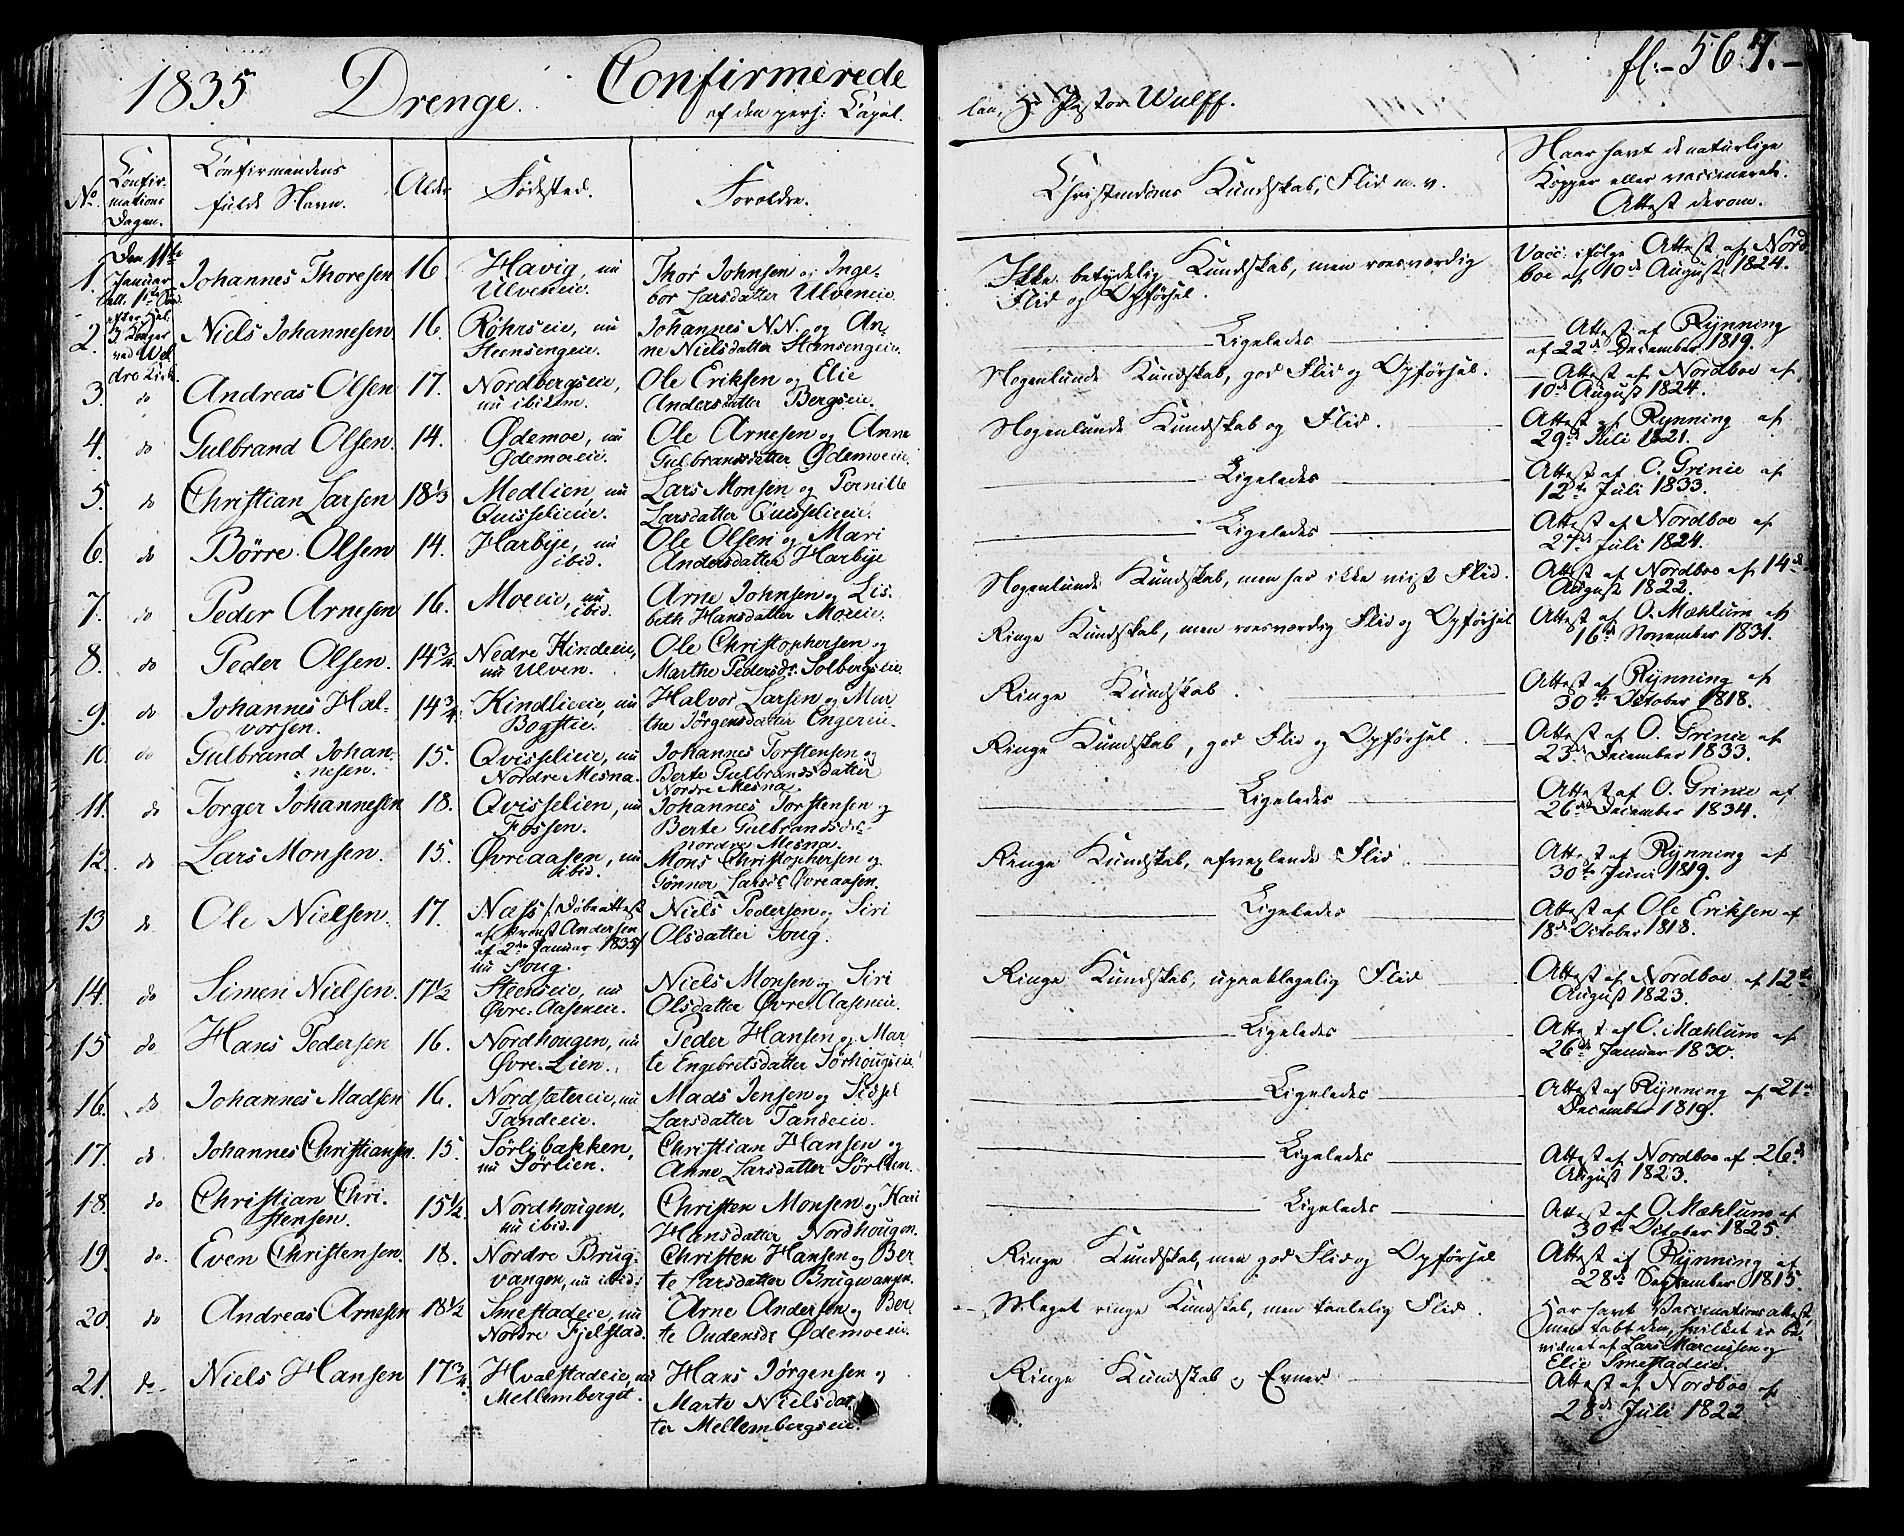 1835 Drenge. Confirmerede
af den pers: Capel-
lan, Hr Pastor Wulff.
fl:- 567.-
No.
Confir-
mations
Dagen.
Confirmandens
fulde Navn.
Alder
Fødested.
Forældre.
Christendoms Kundskab, Flid m. v.
Naar havt de naturlige
Kopper eller vaccinerede.
Attest derom.
1. Den 11te
Januar
1ste Sønd.
efter Hel.
3 Konger
ved Wel
dre Kirke
Johannes Thoresen 16
Havig, nu
Ulveneie.
Thor Johnsen og Inge-
bor Larsdatter Ulveneie.
Ikke betydelig Kundskab, men roesværdig
Flid og Opførsel.
Vacc: ifølge Attest af Nord
boe af 10de August 1824.
2. Niels Johannesen 16.
Røhrseie, nu
Steensengeie.
Johannes N.N. og An-
ne Nielsdatter Stensengeie.
Ligeledes
Attest af Rynning
af 22de December 1819.
3. do Andreas Olsen 17.
Nordbergseie,
nu ibidem.
Ole Eriksen og Elie
Andersdatter Bergseie.
Nogenlunde Kundskab, god Flid og Opførsel.
Attest af Nordboe af
10de August 1824.
4. do Gulbrand Olsen. 14.
Ødemoe, nu
Ødemoeeie.
Ole Arnesen og Anne
Gulbrandsdatter Ødemoeeie.
Nogenlunde Kundskab og Flid.
Attest af Rynning af
29de Juli 1821.
5. do Christian Larsen 18 1/3
Medlien, nu
Quisselieeie.
Lars Monsen og Pernille
Larsdatter Quisselieeie.
Ligeledes
Attest af O. Grinie af
12te Juli 1833.
6. do Børre Olsen 14.
Harbye, nu
ibid.
Ole Olsen og Mari
Andersdatter Harbye
Ligeledes
Attest af Nordboe af
27de Juli 1824.
7. do Peder Arnesen 16.
Moeeie, nu
ibid.
Arne Johnsen og Lis-
beth Hansdatter Moeeie.
Nogenlunde Kundskab, men har ikke viist Flid.
Attest af Nordboe af 14de
August 1822.
8. do Peder Olsen. 14 3/4
Nedre Kindeeie,
nu Ulven.
Ole Christophersen og
Marthe Pedersdr. Solbergseie
Ringe Kundskab, men roesværdig Flid og Opførsel
Attest af O. Mæhlum af
16de November 1831.
9. do Johannes Hal-
vorsen. 14 3/4.
Kindlieeie, nu
Bogstie.
Halvor Larsen og Mar
the Jørgensdatter Engereie.
Ringe Kundskab.
Attest af Rynning af
30te October 1818.
10. do Gulbrand Johan-
nesen. 15.
Qvisselieeie, nu
Nordre Mesna.
Johannes Torstensen og
Berte Gulbrandsdatter
Nordre Mesna.
Ringe Kundskab, god Flid og Opførsel.
Attest af O. Grinie af
23de December 1833.
11. do Torger Johannesen 18.
Qvisselien, nu
Fossen.
Johannes Torstensen og
Berte Gulbrandsdr
nordre Mesna.
Ligeledes
Attest af O. Grinie af
26de December 1834.
12. do Lars Monsen. 15.
Øvreaasen, nu
ibid.
Mons Christophersen og
Gønner Larsdr Øvreaasen.
Ringe Kundskab, afvexlende Flid.
Attest af Rynning af
30te Juni 1819.
13 do Ole Nielsen. 17.
Næss /: Døbeattest
af Provst Andersen
af 2den Januar 1835/
nu Soug.
Niels Pedersen og Siri
Olsdatter Soug.
Ligeledes
Attest af Ole Eriksen af
18de October 1818.
14. do Simen Nielsen. 17 1/2
Steenseie, nu
Øvre Aaseneie.
Niels Monsen og Siri
Olsdatter Øvre Aaseneie.
Ringe Kundskab, upaaklagelig Flid
Attest af Nordboe af 12te
August 1823.
15 do Hans Pedersen 16.
Nordhougen, nu
Øvre Lien.
Peder Hansen og Mar-
te Engebretsdatter Sørhougseie
Ligeledes
Attest af O. Mæhlum af
26de Januar 1830.
16. do Johannes Madsen 16.
Nordsætereie, nu
Tandeeie.
Mads Jensen og Sidsel
Larsdatter Tandeeie.
Ligeledes
Attest af Rynning af 21de
December 1819.
17. do Johannes Christiansen. 15.
Sørlibakken,
nu Sørlien.
Christian Hansen og
Anne Larsdatter Sørlien.
Ligeledes
Attest af Nordboe af 26de
August 1823.
18. do Christian Chri-
stensen. 15 1/2.
Nordhougen,
nu ibid.
Christen Monsen og Kari
Hansdatter Nordhougen.
Ligeledes
Attest af O. Mæhlum af
30te October 1825.
19. do Even Christensen. 18.
Nordre Brug-
vangen, nu ibid:
Christen Hansen og Ber
te Larsdatter Brugwangen.
Ringe Kundskab, men god Flid og Opførsel
Attest af Rynning af
28de September 1815.
20. do Andreas Arnesen 18 1/2
Smestadeie, nu
Nordre Fjelstad.
Arne Andersen og Ber-
te Oudensdr Ødemoeeie.
Meget ringe Kundskab, men taalelig Flid.
Har havt Vaccinationsattest,
men tabt den, hvilket er be-
vidnet af Lars Marcussen og
Elie Smestadeie.
21. do Niels Hansen 17 3/4.
Hvalstadeie, nu
Mellemberget.
Hans Jørgensen og
Marte Nielsdat
ter Mellembergseie.
Ringe Kundskab og Evner
Attest af Nordboe af
28de Juli 1822